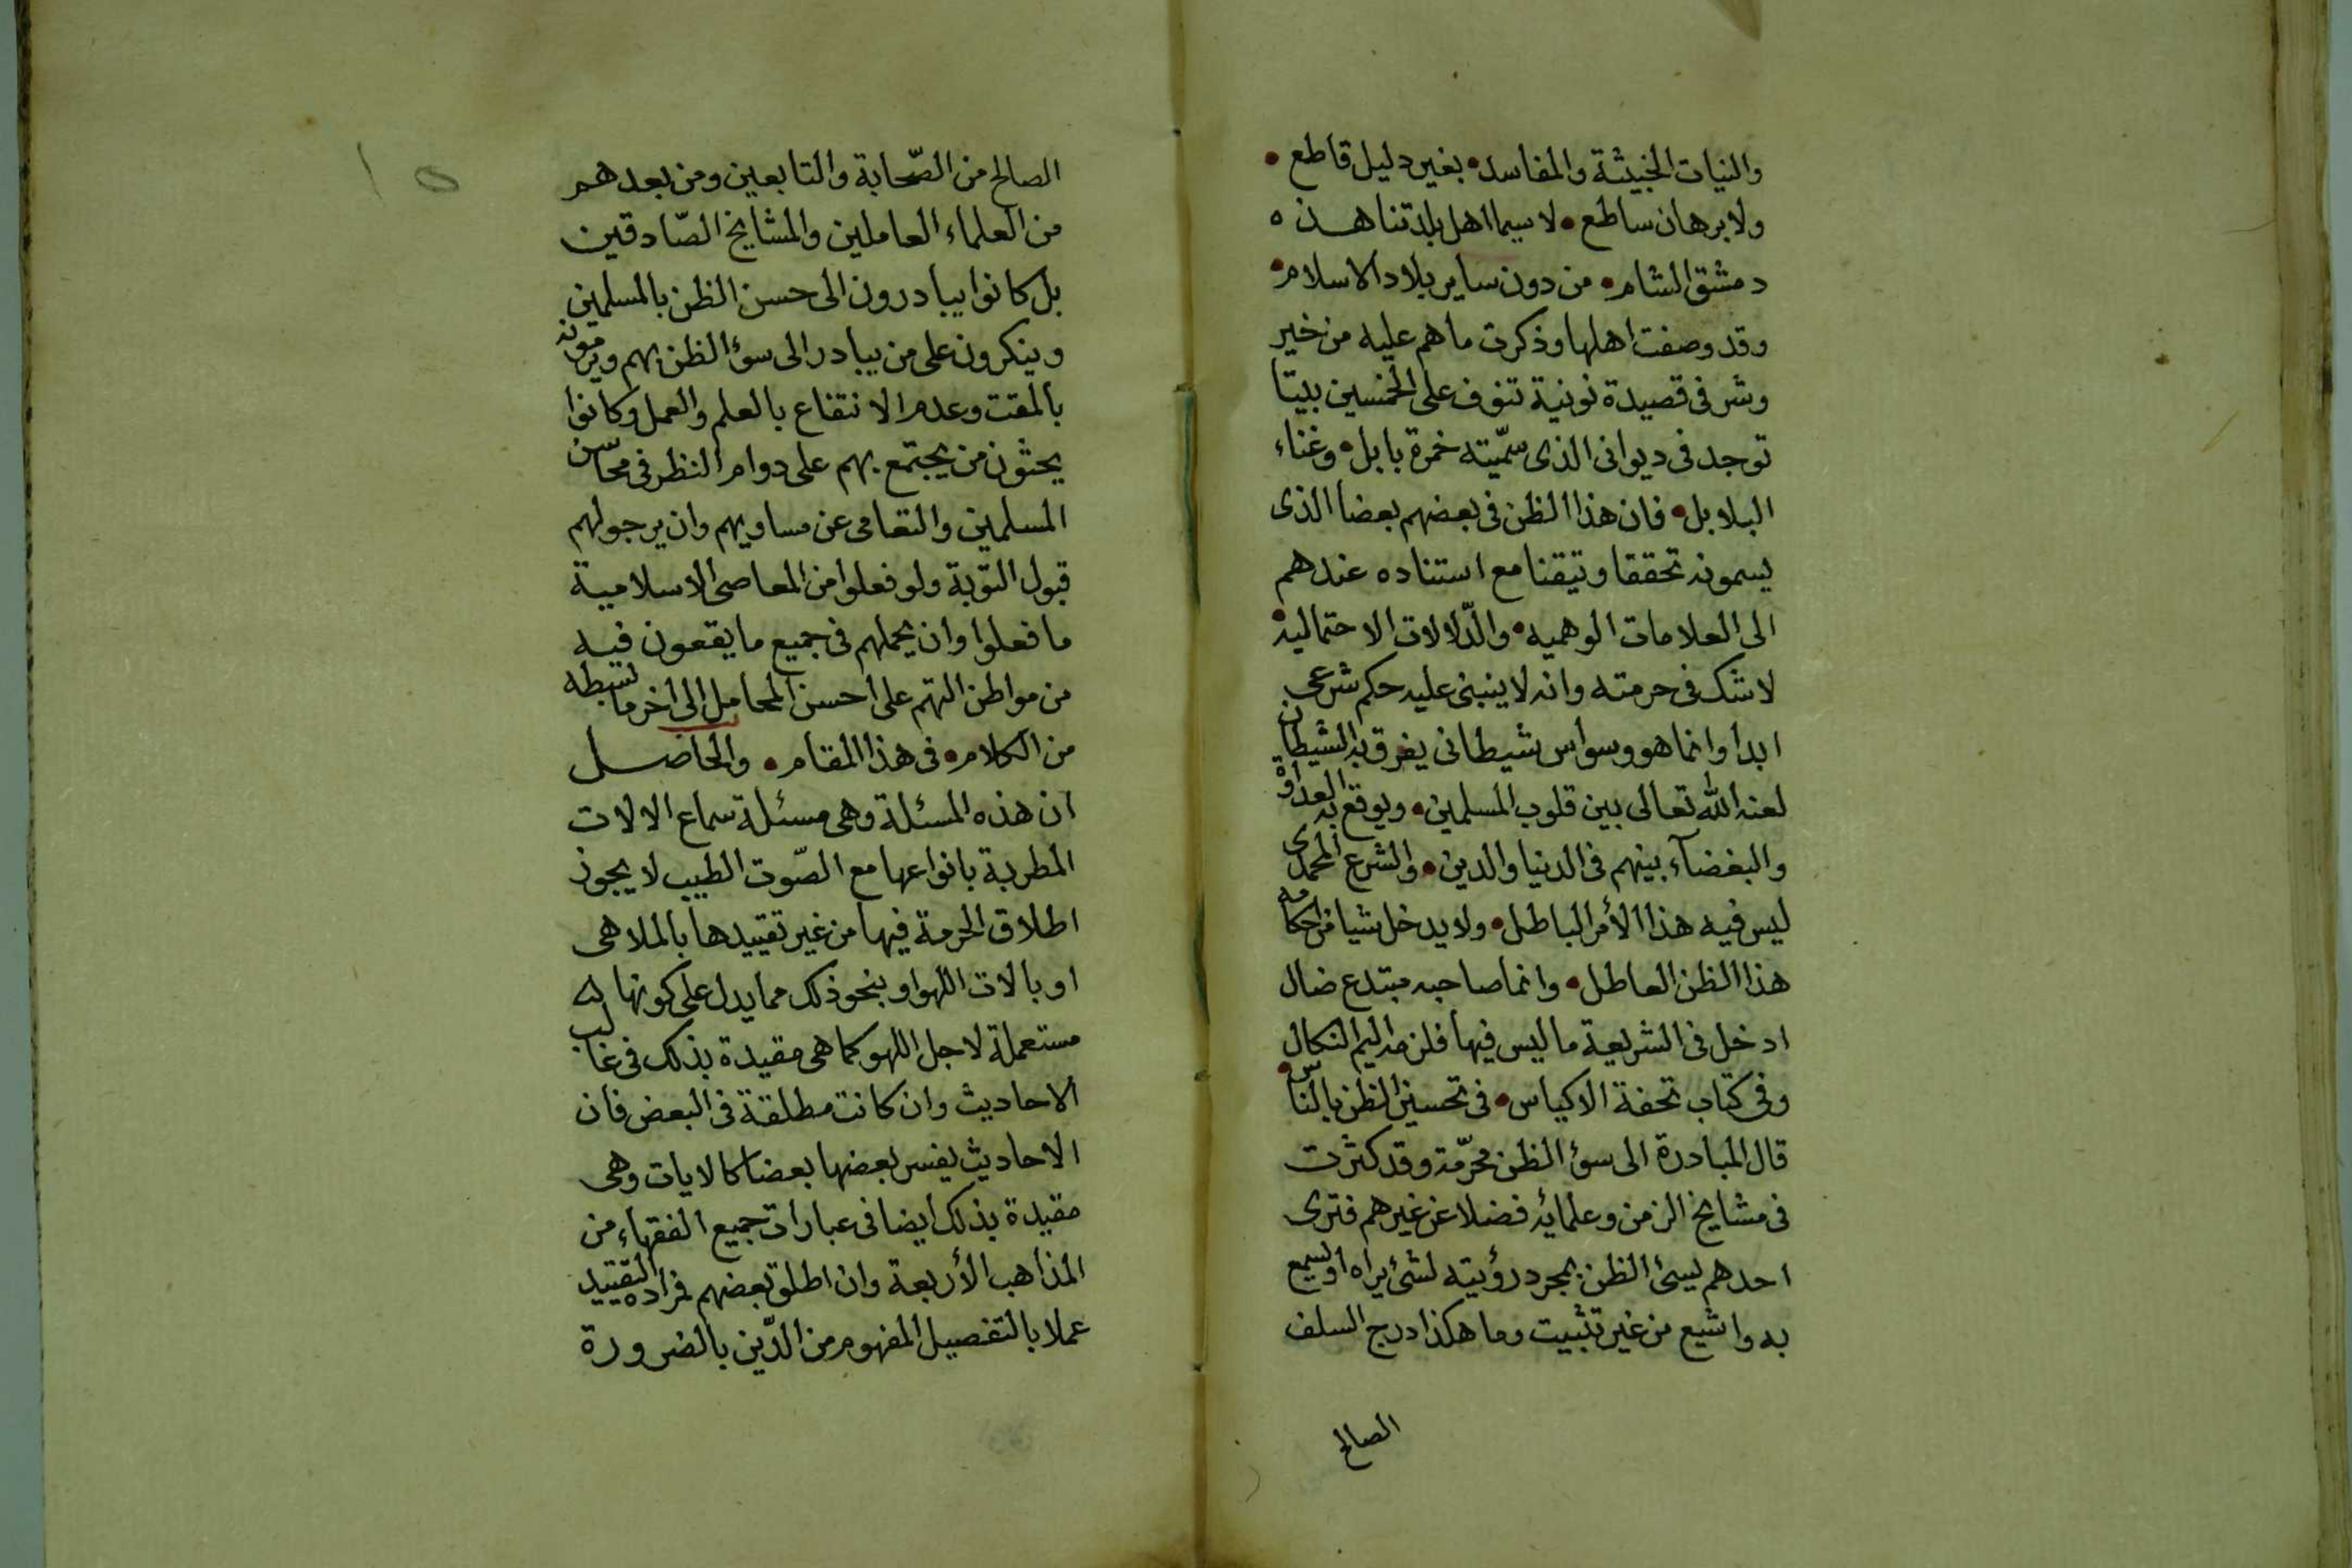 والنيات الخبيثة والمفاسد • بغير دليل قاطع •
ولا برهان ساطع • لا سيما اهل بلدتنا هذه
دمشق الشام • من دون ساير بلاد الاسلام •
وقد وصفت اهلها وذكرت ما هم عليه من خير
وشر فى قصيدة نونية تنوف على الخمسين بيتا
توجد فى ديوانى الذى سمّيته خمرة بابل • وغناء
البلابل • فان هذا الظن فى بعضهم بعضا الذى
يسمونه تحققا وتيقنا مع استناده عندهم
الى العلامات الوهميه • والدّلالات الاحتماليه •
لا شك فى حرمته وانه لا ينبنى عليه حكم شرعى
ابدا وانما هو وسواس شيطانى يفرق به الشيطان
لعنه الله تعالى بين قلوب المسلمين • ويوقع به العداوة
والبغضآء بينهم فى الدنيا والدين • والشرع المحمدى
ليس فيه هذا الأمر الباطل • ولا يدخل شيا من احكامه
هذا الظن العاطل • وانما صاحبه مبتدع ضال
ادخل فى الشريعة ما ليس فيها فلزمه اليم النكال
وفى كتاب تحفة الاكياس • فى تحسين الظن بالناس •
قال المبادرة الى سؤ الظن محرّمة وقد كثرت
فى مشايخ الزمن وعلمائه فضلا عن غيرهم فترى
احدهم يسئ الظن بمجرد رؤيته لشئ يراه او يسمع
به واشيع من غير تثبيت وما هكذا درج السلف
الصالح
١٥
الصالح من الصّحابة والتابعين ومن بعدهم
من العلماء العاملين والمشايخ الصّادقين
بل كانوا يبادرون الى حسن الظن بالمسلمين
وينكرون على من يبادر الى سؤ الظن بهم ويرمونه
بالمقت وعدم الانتفاع بالعلم والعمل وكانوا
يحثون من يجتمع بهم على دوام النظر فى محاسن
المسلمين والتعامى عن مساويهم وان يرجو لهم
قبول التوبة ولو فعلوا من المعاصى الاسلامية
ما فعلوا وان يحملهم فى جميع ما يقعون فيه
من مواطن التهم على احسن المحامل الى اخر ما بسطه
من الكلام • فى هذا المقام • والحاصل
ان هذه المسئلة وهى مسئلة سماع الالات
المطربة بانواعها مع الصّوت الطيب لا يجوز
اطلاق الحرمة فيها من غير تقييدها بالملاهى
او بالات اللهو او بنحو ذلك مما يدل على كونها له
مستعملة لاجل اللهو كما هى مقيدة بذلك فى غالب
الاحاديث وان كانت مطلقة فى البعض فان
الاحاديث يفسر بعضها بعضا كالايات وهى
مقيدة بذلك ايضا فى عبارات جميع الفقهاء من
المذاهب الأربعة وان اطلق بعضهم فمراده التقييد
عملا بالتفصيل المفهوم من الدّين بالضرورة